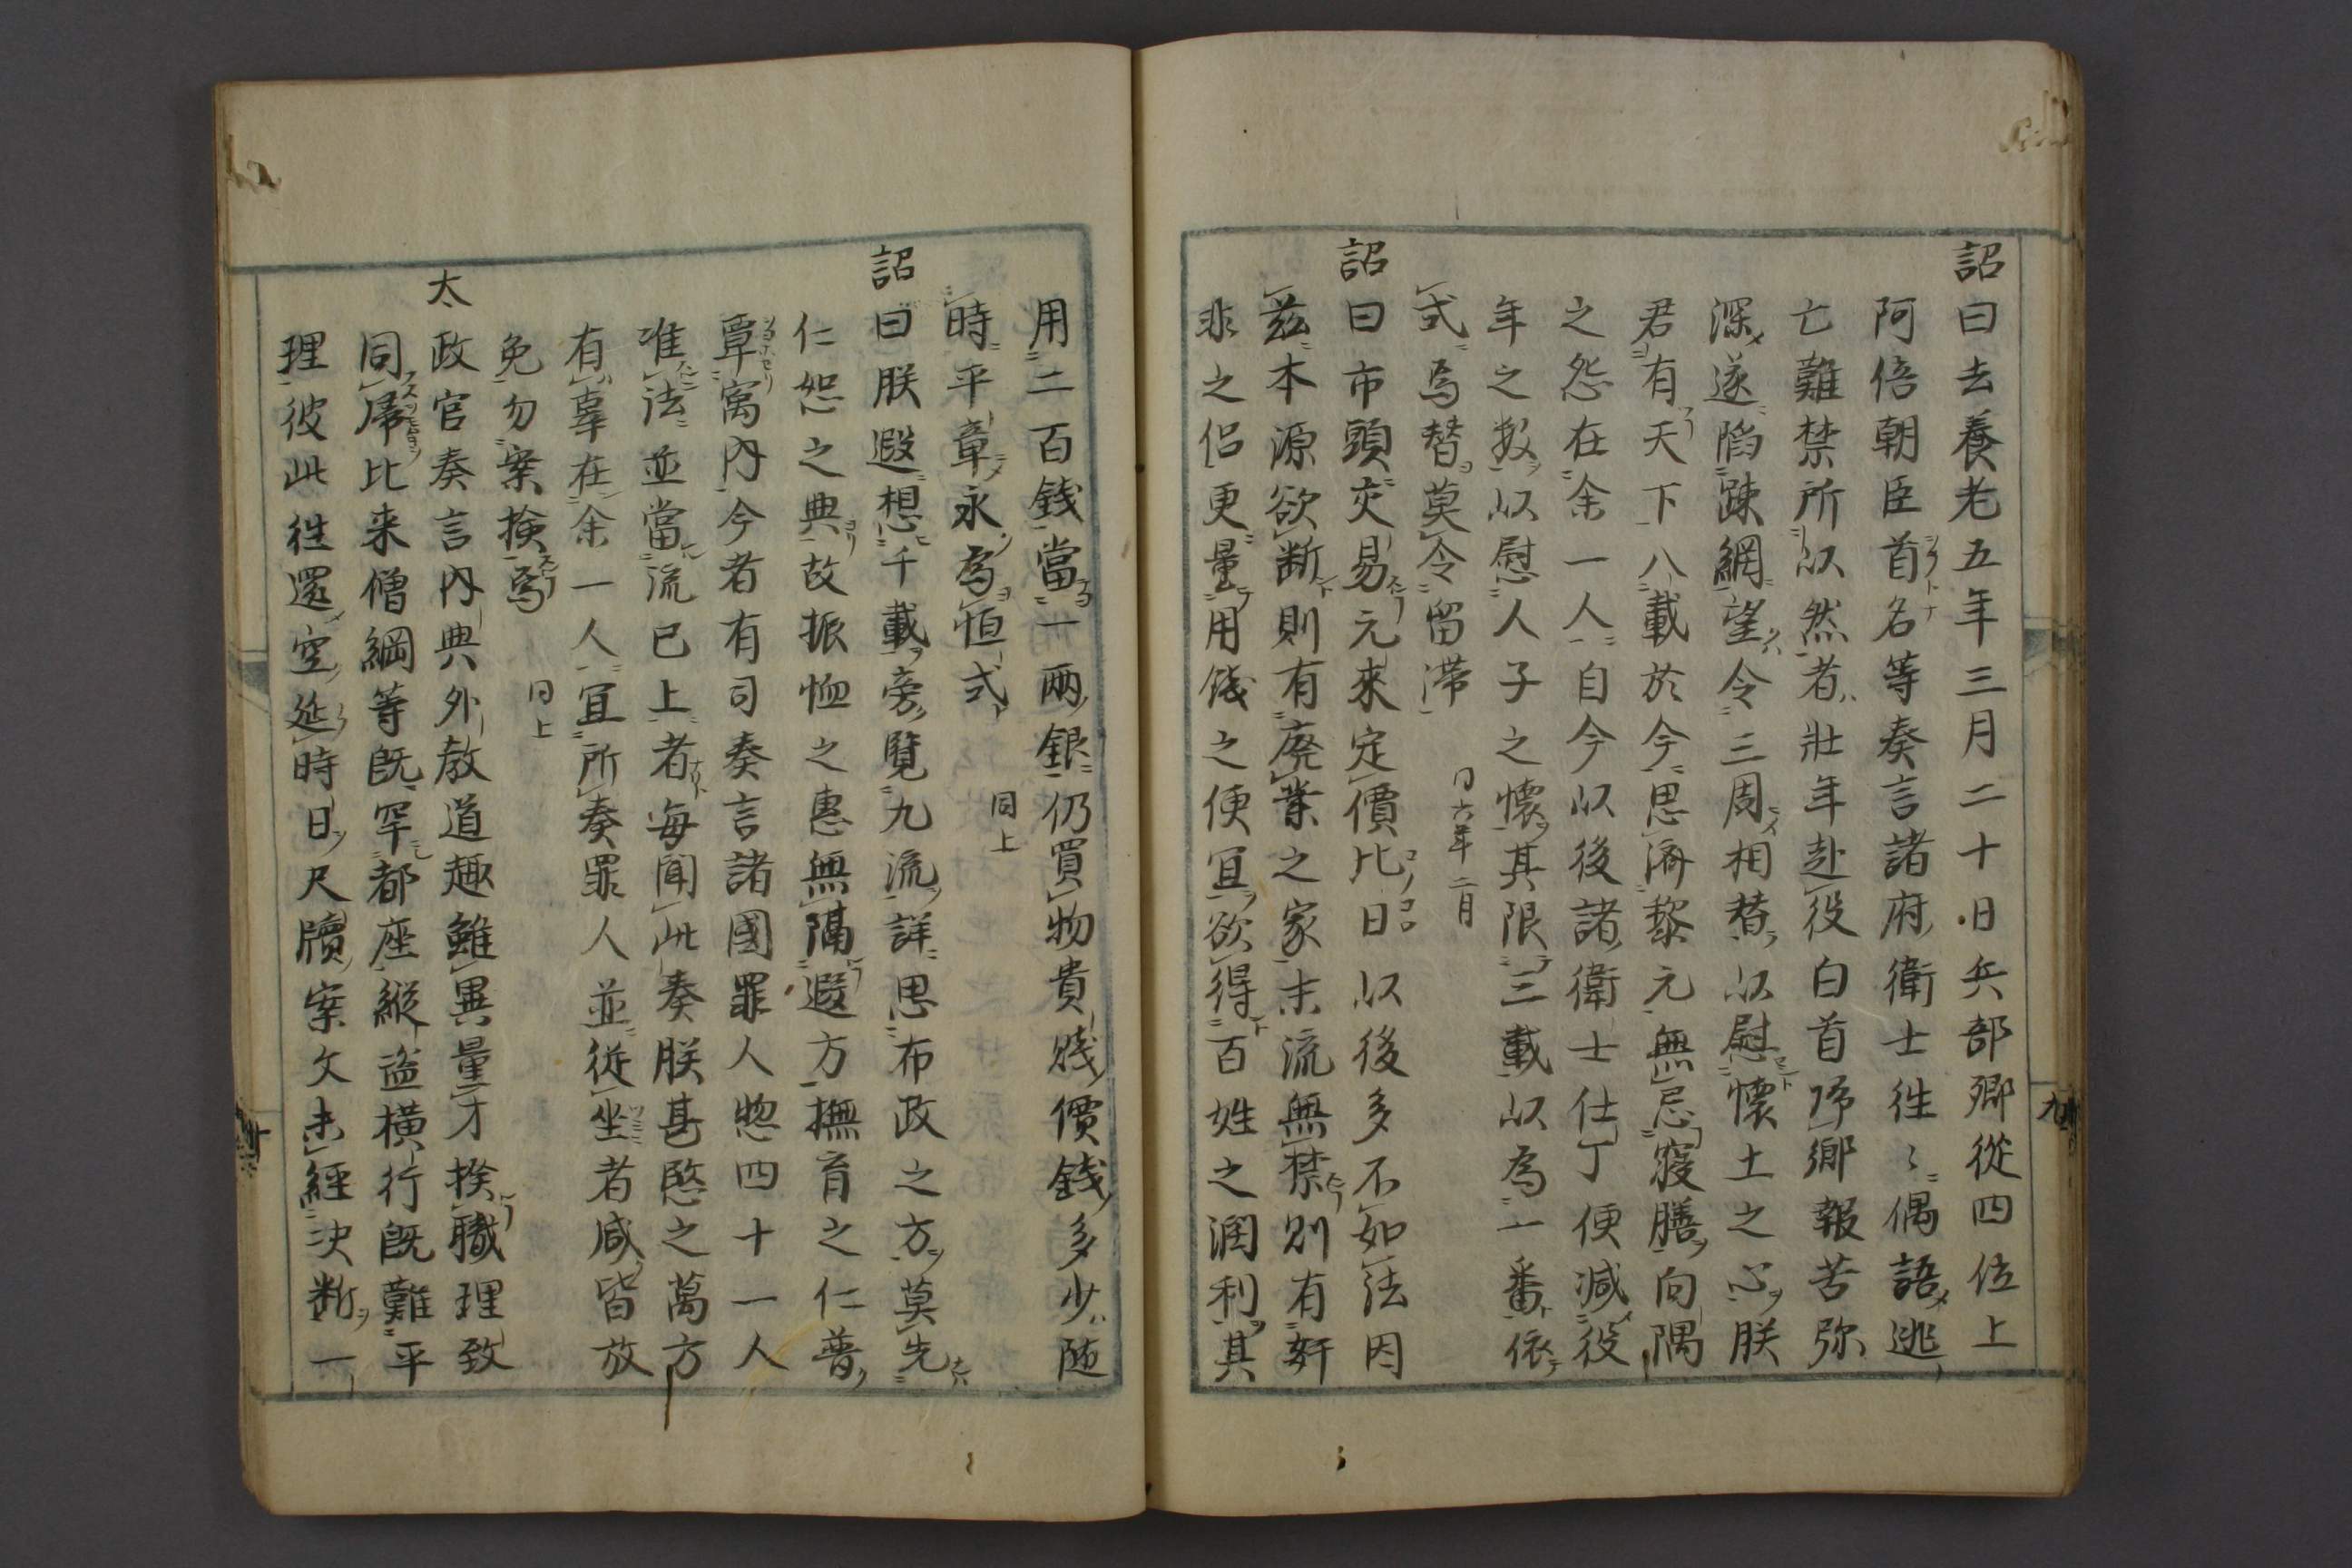 詔曰去養老五年三月二十日兵部卿從四位上
阿倍朝臣首名等奏言諸府衛士徃〻偶語逃
亡難禁所以然者壯年赴役白首歸郷報苦弥
深遂陷踈網望令三周相替以慰懷土之心朕
君有天下八載於今思濟黎元無忘寢膳向隅
之怨在余一人自今以後諸衛士仕丁便減役
年之數以慰人子之懷其限三載以為一番依
式為替莫令留滯　同六年二月
詔曰市頭交易元來定價比日以後多不如法因
茲本源欲断則有廃業之家末流無禁則有奸
非之侶更量用錢之便宜欲得百姓之潤利其
用二百錢當一兩銀仍買物貴賤價錢多少随
時平章永為恒式　同上
詔曰朕遐想千載旁覽九流詳思布政之方莫先
仁恕之典故振恤之惠無隔遐方撫育之仁普
覃寓内今者有司奏言諸國罪人惣四十一人
准法並當流已上者每聞此奏朕甚愍之萬方
有辜在余一人宜所奏罪人並從坐者咸皆放
免勿案検焉　同上
太政官奏言内典外教道趣雖異量才揆職理致
同歸比来僧綱等既罕都座縱盗横行既難平
理彼此徃還空延時日尺牘案文未經决断一
九
十